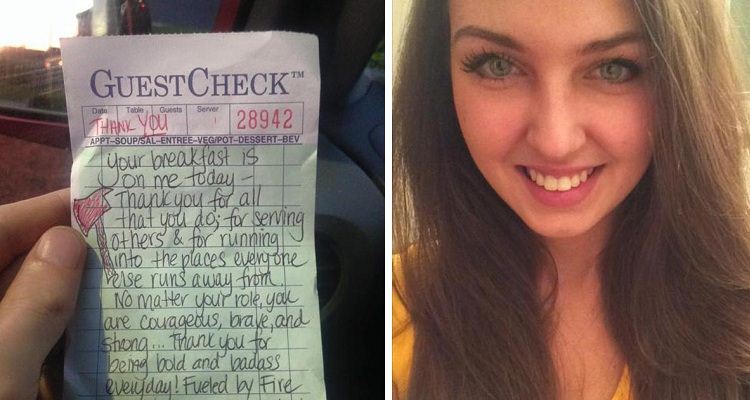 GUESTCHECK™
Date Table Guests Server
THANK YOU 28942
APPT-SOUP/SAL-ENTREE-VEG/POT-DESSERT-BEV
Your breakfast is
on me today -
Thank you for all
that you do; for serving
others & for running
into the places everyone
else runs away from.
No matter your role, you
are courageous, brave, and
strong... Thank you for
being bold and badass
everyday! Fueled by Fire